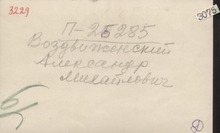 3229
3075
П-25285
Воздвиженский
Александр
Михайлович